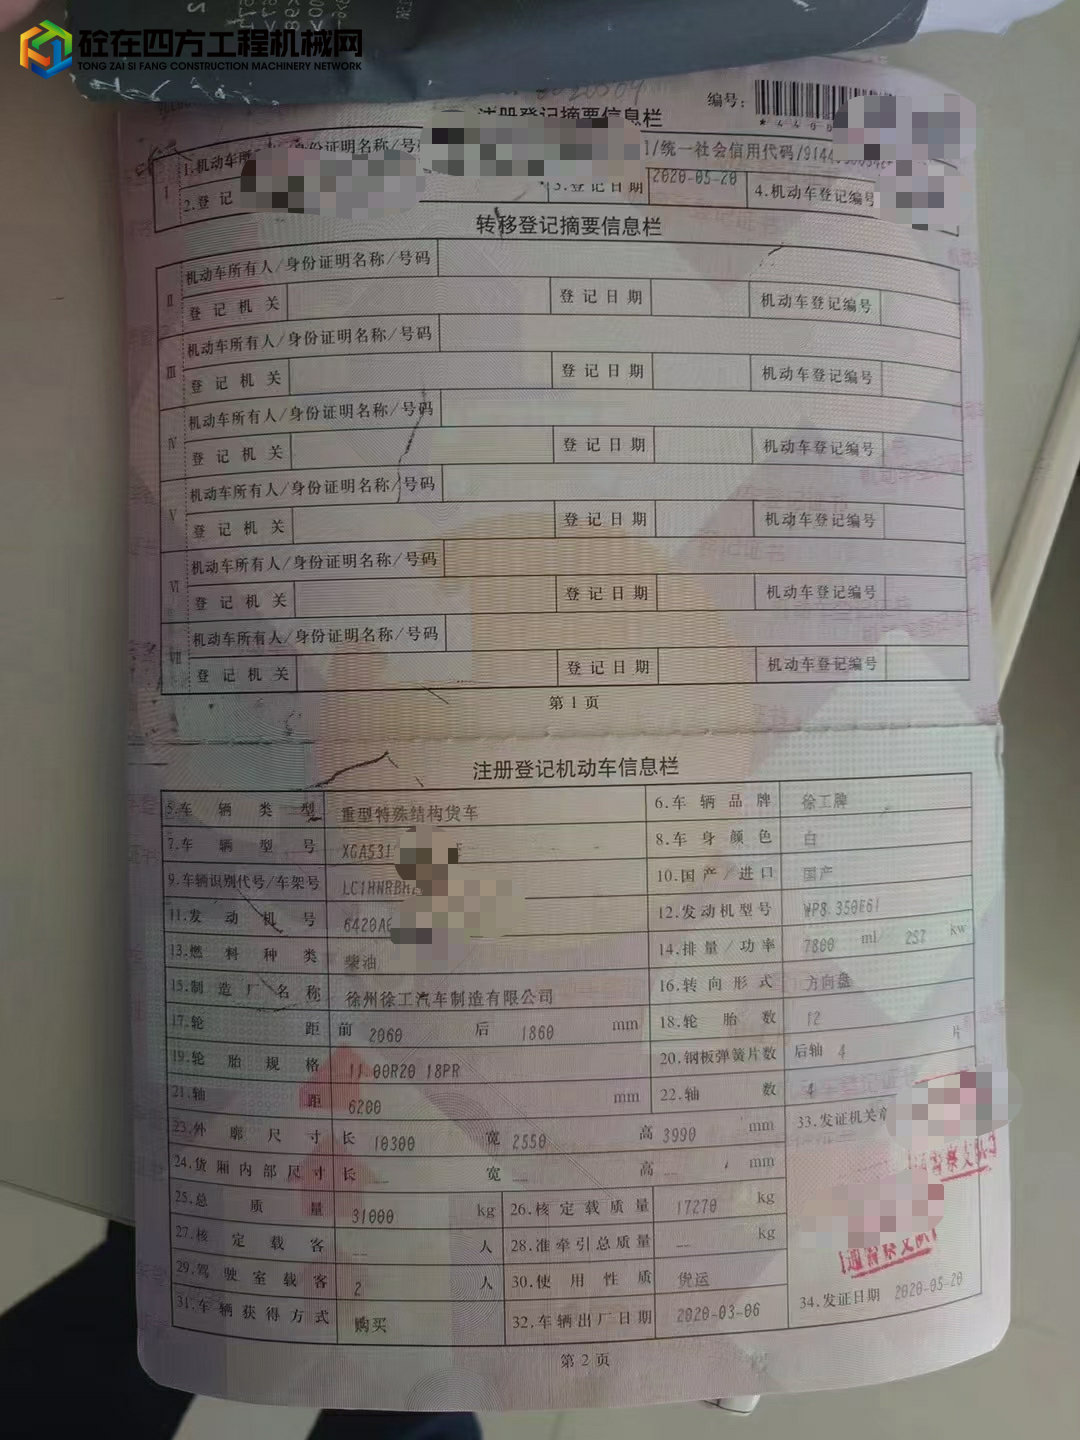 砼在四方工程机械网
TONG ZAI SI FANG CONSTRUCTION MACHINERY NETWORK
注册登记摘要信息栏
编号:
I
1.机动车所 /身份证明名称/号 1/统一社会信用代码/9144
2.登记 3.登记日期 2020-05-20 4.机动车登记编号
转移登记摘要信息栏
II
机动车所有人/身份证明名称/号码
登记机关 登记日期 机动车登记编号
III
机动车所有人/身份证明名称/号码
登记机关 登记日期 机动车登记编号
IV
机动车所有人/身份证明名称/号码
登记机关 登记日期 机动车登记编号
V
机动车所有人/身份证明名称/号码
登记机关 登记日期 机动车登记编号
VI
机动车所有人/身份证明名称/号码
登记机关 登记日期 机动车登记编号
VII
机动车所有人/身份证明名称/号码
登记机关 登记日期 机动车登记编号
第 1 页
注册登记机动车信息栏
5.车辆类型 重型特殊结构货车 6.车辆品牌 徐工牌
7.车辆型号 XGA531 E 8.车身颜色 白
9.车辆识别代号/车架号 LC1HNRBH 10.国产/进口 国产
11.发动机号 6420A 12.发动机型号 WP8.350E61
13.燃料种类 柴油 14.排量/功率 7800 ml/ 257 kw
15.制造厂名称 徐州徐工汽车制造有限公司 16.转向形式 方向盘
17.轮距 前 2060 后 1860 mm 18.轮胎数 12
19.轮胎规格 11.00R20 18PR 20.钢板弹簧片数 后轴 4 片
21.轴距 6200 mm 22.轴数 4
23.外廓尺寸 长 10300 宽 2550 高 3990 mm 33.发证机关章
24.货厢内部尺寸 长 -- 宽 -- 高 -- mm
25.总质量 31000 kg 26.核定载质量 17270 kg
27.核定载客 -- 人 28.准牵引总质量 -- kg
29.驾驶室载客 2 人 30.使用性质 货运
31.车辆获得方式 购买 32.车辆出厂日期 2020-03-06 34.发证日期 2020-05-20
第 2 页